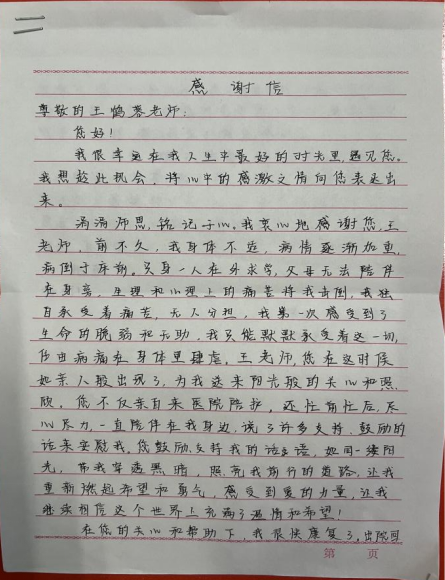 感谢信
尊敬的王鹤蓉老师:
您好!
我很幸运在我人生中最好的时光里,遇见您。
我想趁此机会,将心中的感激之情向您表达出
来。
涓涓师恩,铭记于心。我衷心地感谢您,王
老师,前不久,我身体不适,病情逐渐加重,
病倒于床榻。只身一人在外求学,父母无法陪伴
在身旁,生理和心理上的痛苦将我击倒,我独
自承受着痛苦,无人分担,我第一次感受到了
生命的脆弱和无助,我只能默默承受着这一切,
任由病痛在身体里肆虐。王老师,您在这时候
如亲人般出现了,为我送来阳光般的关心和照
顾。您不仅亲自来医院陪护,还忙前忙后,尽
心尽力,一直陪伴在我身边,说了许多支持、鼓励的
话来安慰我,您鼓励、支持我的话语,如同一缕阳
光,带我穿透黑暗,照亮我前行的道路,让我
重新燃起希望和勇气,感受到爱的力量,让我
继续相信这个世界上充满了温情和希望!
在您的关心和帮助下,我很快康复了,出院回
第 页